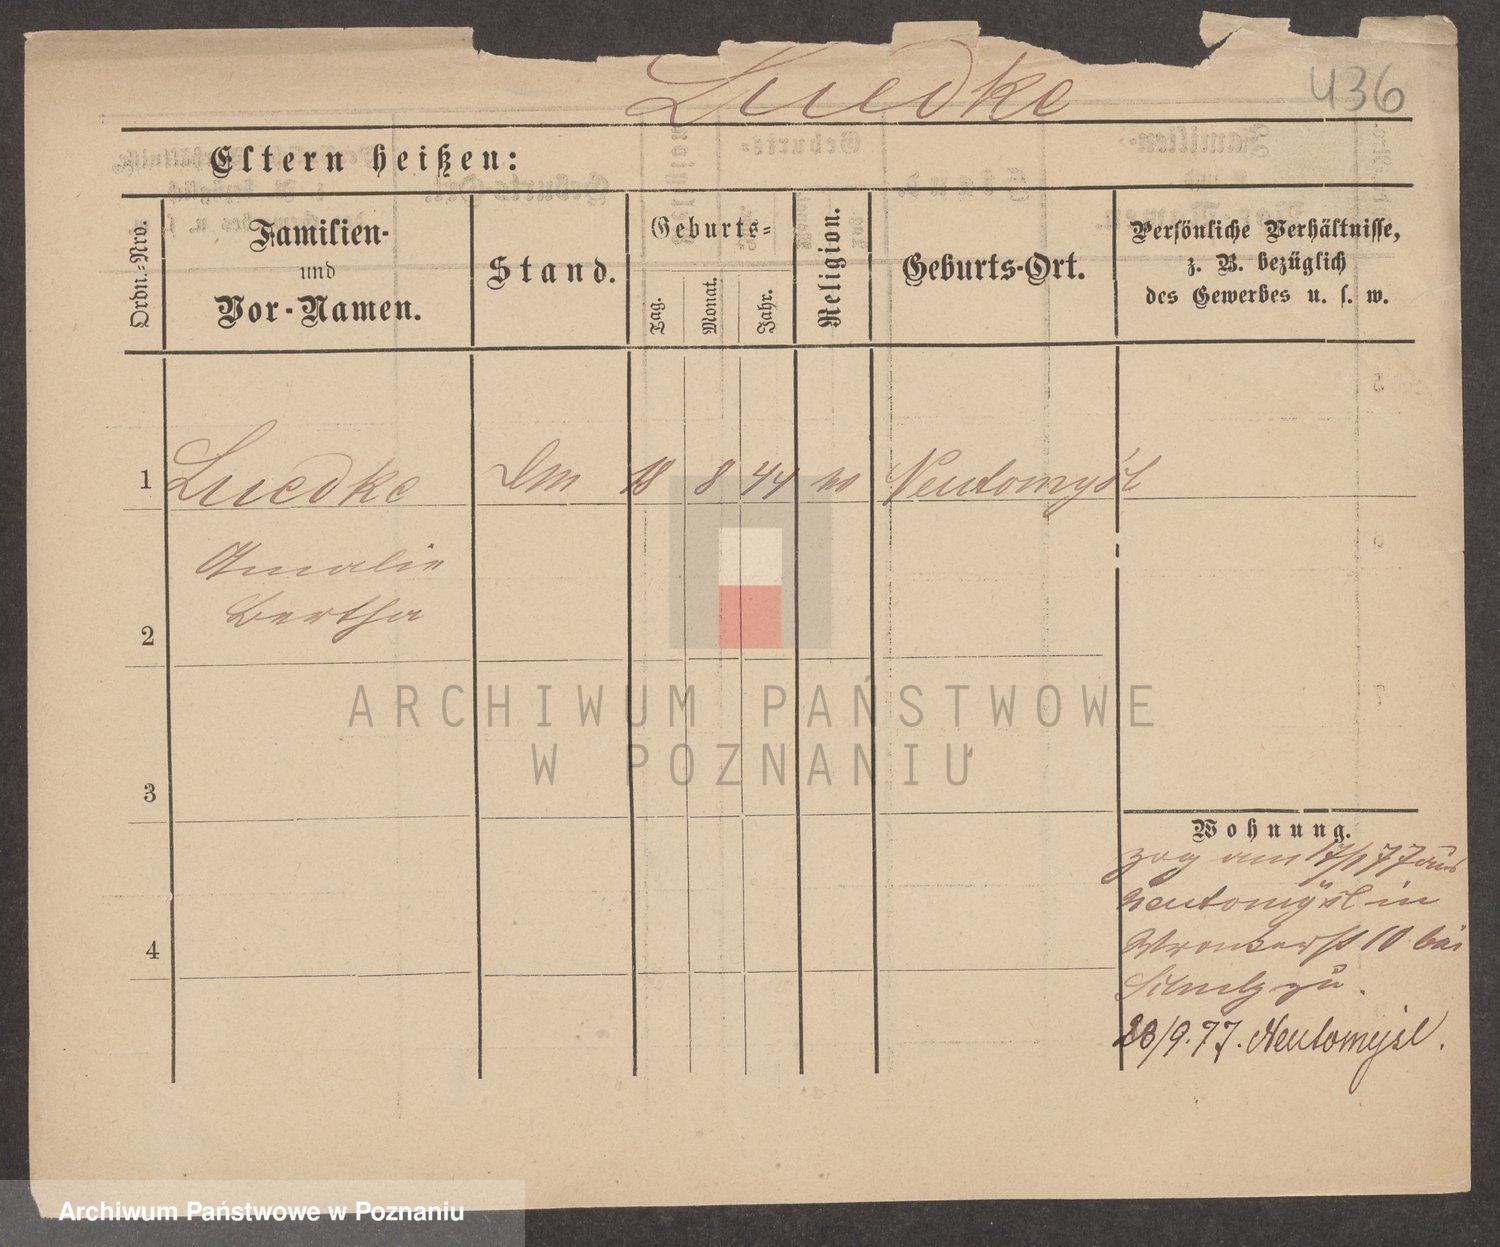 Luedke
436
Eltern heißen:
Ordn.-Nro.
Familien-
und
Vor-Namen.
Stand.
Geburts-
Tag.
Monat.
Jahr.
Religion.
Geburts-Ort.
Persönliche Verhältnisse,
z. B. bezüglich
des Gewerbes u. s. w.
1 Luedke 18 8 44 Neutomyśl
Amalie
Bertha
2
3
4
ARCHIWUM PAŃSTWOWE
W POZNANIU
Wohnung.
zog am 17/1 77 aus
Neutomyśl in
Wronkerst 10 bei
zu.
23/9.77. Neutomysl.
Archiwum Państwowe w Poznaniu